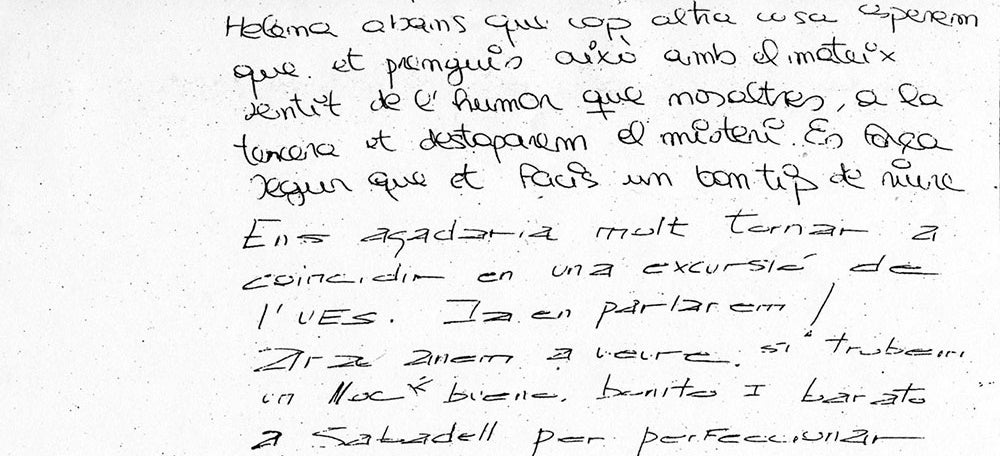 Helena abans que cap altra cosa esperem
que et prenguis això amb el mateix
sentit de l'humor que nosaltres, a la
tercera et destaparem el misteri. És força
segur que et facis un bon tip de riure.
Ens agadaria molt tornar a
coincidir en una excursió de
l'UES. Ja en parlarem /
Ara anem a veure si trobem
un lloc bueno, bonito I barato
a Sabadell per perfeccionar